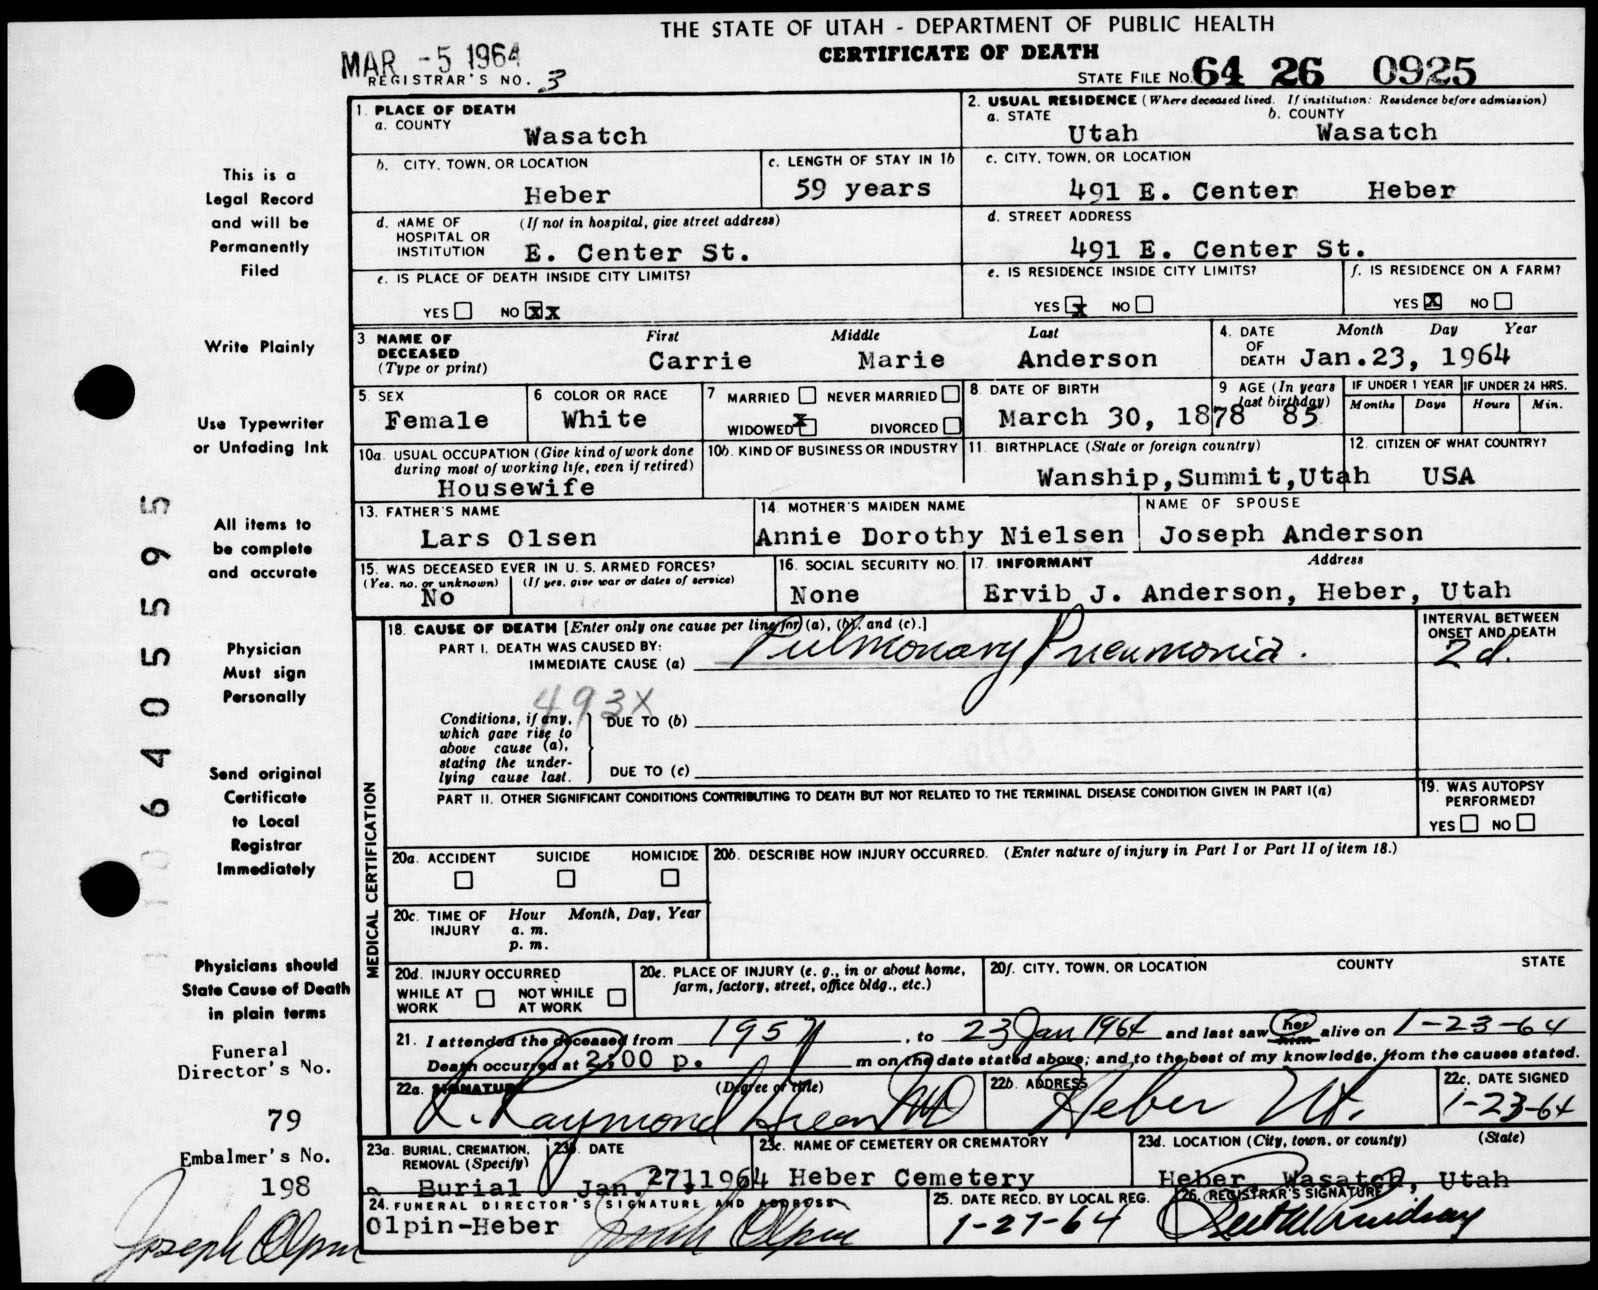 THE STATE OF UTAH - DEPARTMENT OF PUBLIC HEALTH
CERTIFICATE OF DEATH
MAR -5 1964
REGISTRAR'S NO. 3
STATE FILE NO. 64 26 0925
This is a
Legal Record
and will be
Permanently
Filed
Write Plainly
Use Typewriter
or Unfading Ink
All items to
be complete
and accurate
Physician
Must sign
Personally
Send original
Certificate
to Local
Registrar
Immediately
Physicians should
State Cause of Death
in plain terms
Funeral
Director's No.
79
Embalmer's No.
198
Joseph Olpin
06405595
1. PLACE OF DEATH
a. COUNTY
Wasatch
2. USUAL RESIDENCE (Where deceased lived. If institution: Residence before admission)
a. STATE b. COUNTY
Utah Wasatch
b. CITY, TOWN, OR LOCATION
Heber
c. LENGTH OF STAY IN 1b
59 years
c. CITY, TOWN, OR LOCATION
491 E. Center Heber
d. NAME OF HOSPITAL OR INSTITUTION (If not in hospital, give street address)
E. Center St.
d. STREET ADDRESS
491 E. Center St.
e. IS PLACE OF DEATH INSIDE CITY LIMITS?
YES NO XX
e. IS RESIDENCE INSIDE CITY LIMITS?
YES X NO
f. IS RESIDENCE ON A FARM?
YES X NO
3 NAME OF DECEASED (Type or print) First Middle Last
Carrie Marie Anderson
4. DATE OF DEATH Month Day Year
Jan.23, 1964
5. SEX
Female
6 COLOR OR RACE
White
7 MARRIED NEVER MARRIED
WIDOWED X DIVORCED
8 DATE OF BIRTH
March 30, 1878
9 AGE (In years last birthday)
85
IF UNDER 1 YEAR IF UNDER 24 HRS.
Months Days Hours Min.
10a. USUAL OCCUPATION (Give kind of work done during most of working life, even if retired)
Housewife
10b. KIND OF BUSINESS OR INDUSTRY
11. BIRTHPLACE (State or foreign country)
Wanship,Summit,Utah
12. CITIZEN OF WHAT COUNTRY?
USA
13. FATHER'S NAME
Lars Olsen
14. MOTHER'S MAIDEN NAME
Annie Dorothy Nielsen
NAME OF SPOUSE
Joseph Anderson
15. WAS DECEASED EVER IN U. S. ARMED FORCES?
(Yes, no, or unknown) (If yes, give war or dates of service)
No
16. SOCIAL SECURITY NO.
None
17. INFORMANT Address
Ervib J. Anderson, Heber, Utah
MEDICAL CERTIFICATION
18. CAUSE OF DEATH [Enter only one cause per line for (a), (b), and (c).]
PART I. DEATH WAS CAUSED BY:
IMMEDIATE CAUSE (a) Pulmonary Pneumonia.
INTERVAL BETWEEN
ONSET AND DEATH
2 d.
493X
Conditions, if any,
which gave rise to
above cause (a),
stating the under-
lying cause last.
DUE TO (b)
DUE TO (c)
PART II. OTHER SIGNIFICANT CONDITIONS CONTRIBUTING TO DEATH BUT NOT RELATED TO THE TERMINAL DISEASE CONDITION GIVEN IN PART I(a)
19. WAS AUTOPSY
PERFORMED?
YES NO
20a. ACCIDENT SUICIDE HOMICIDE
20b. DESCRIBE HOW INJURY OCCURRED. (Enter nature of injury in Part I or Part II of item 18.)
20c. TIME OF INJURY Hour Month, Day, Year
a. m.
p. m.
20d. INJURY OCCURRED
WHILE AT WORK NOT WHILE AT WORK
20e. PLACE OF INJURY (e. g., in or about home,
farm, factory, street, office bldg., etc.)
20f. CITY, TOWN, OR LOCATION COUNTY STATE
21. I attended the deceased from 1957, to 23 Jan 1964 and last saw her him alive on 1-23-64
Death occurred at 2:00 p. m on the date stated above; and to the best of my knowledge, from the causes stated.
22a. SIGNATURE (Degree or title)
R. Raymond Green MD
22b. ADDRESS
Heber Ut.
22c. DATE SIGNED
1-23-64
23a. BURIAL, CREMATION,
REMOVAL (Specify)
Burial
23b. DATE
Jan. 27, 1964
23c. NAME OF CEMETERY OR CREMATORY
Heber Cemetery
23d. LOCATION (City, town, or county) (State)
Heber Wasatch, Utah
24. FUNERAL DIRECTOR'S SIGNATURE AND ADDRESS
Olpin-Heber
25. DATE RECD. BY LOCAL REG.
1-27-64
26. REGISTRAR'S SIGNATURE